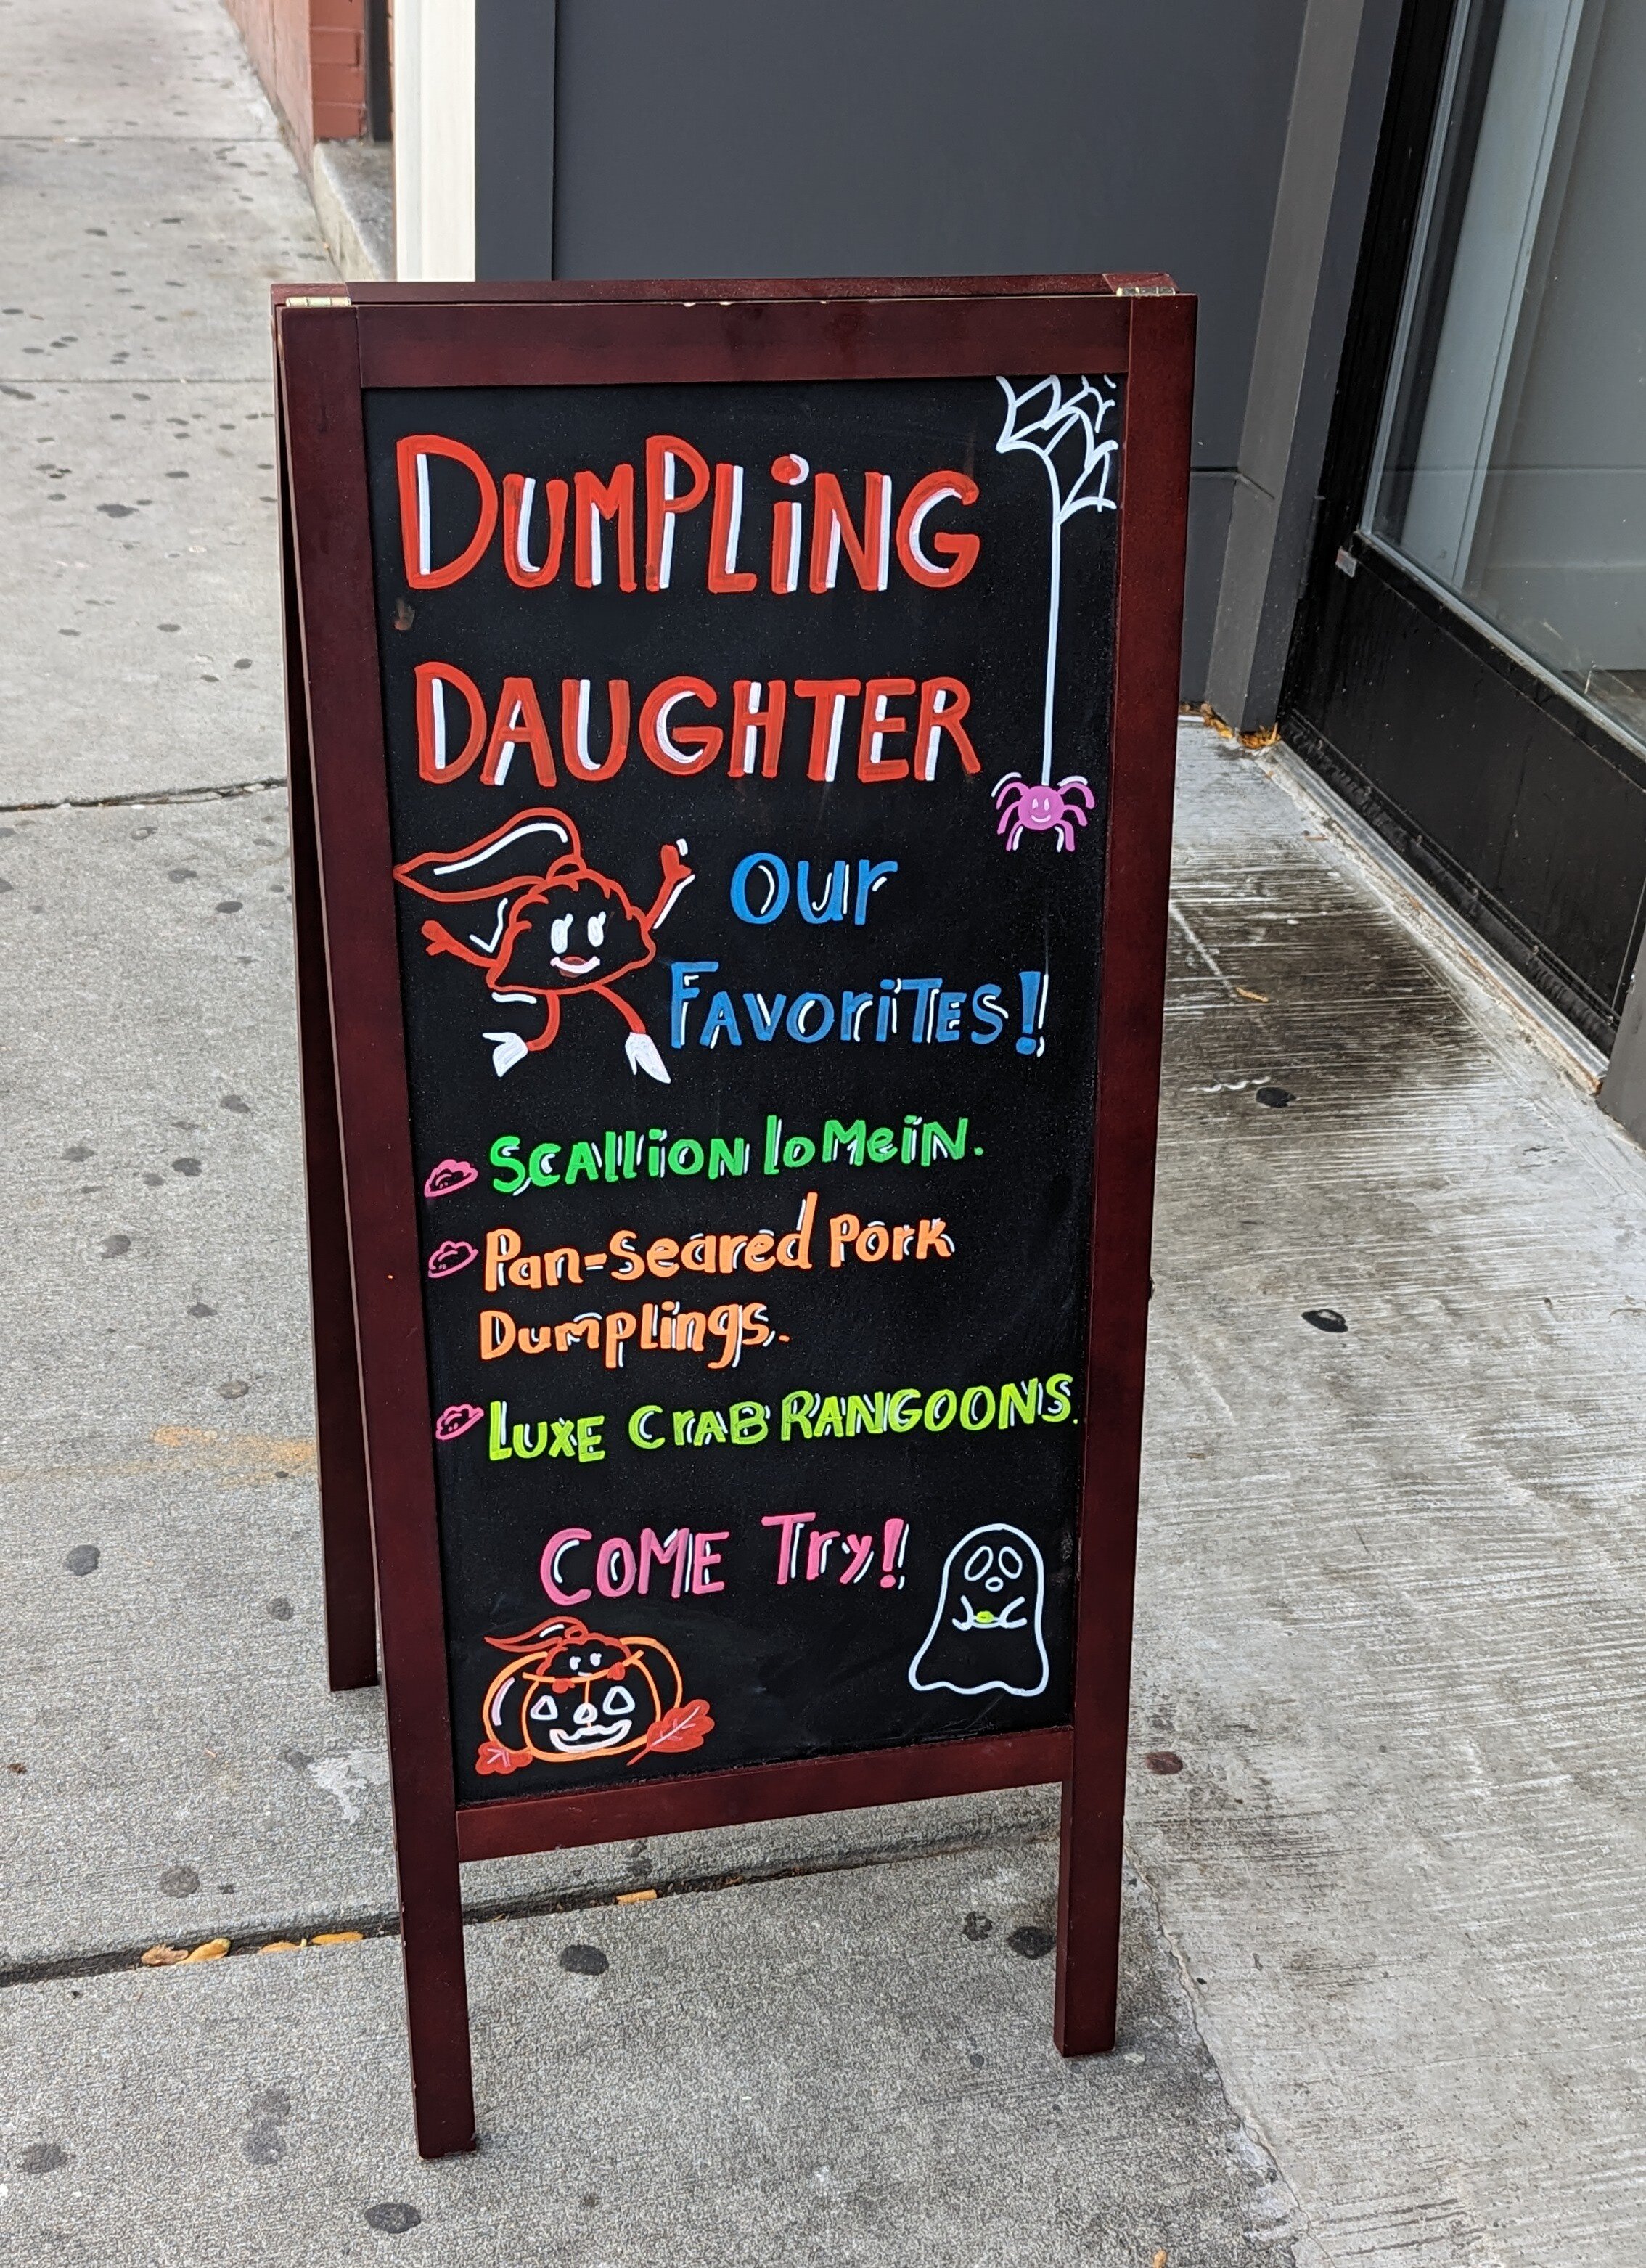 DUMPLiNG
DAUGHTER
Our
FAVOriTES!
SCAllION lo MeiN.
Pan-Seared Pork
Dumplings.
LUXE CrAB RANGOONS.
COME Try!